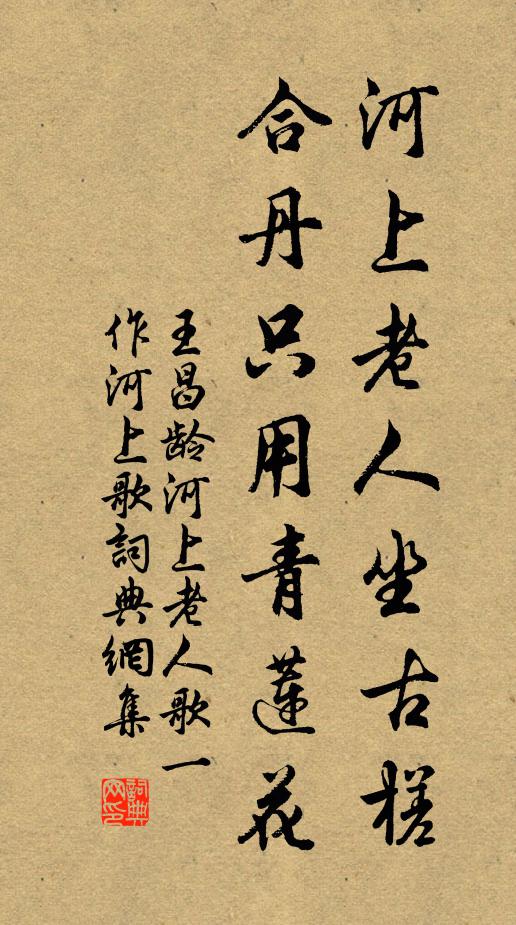 河上老人坐古槎
合丹只用青蓮花
王昌齡河上老人歌一
作河上歌詞典網集
詞典
网印